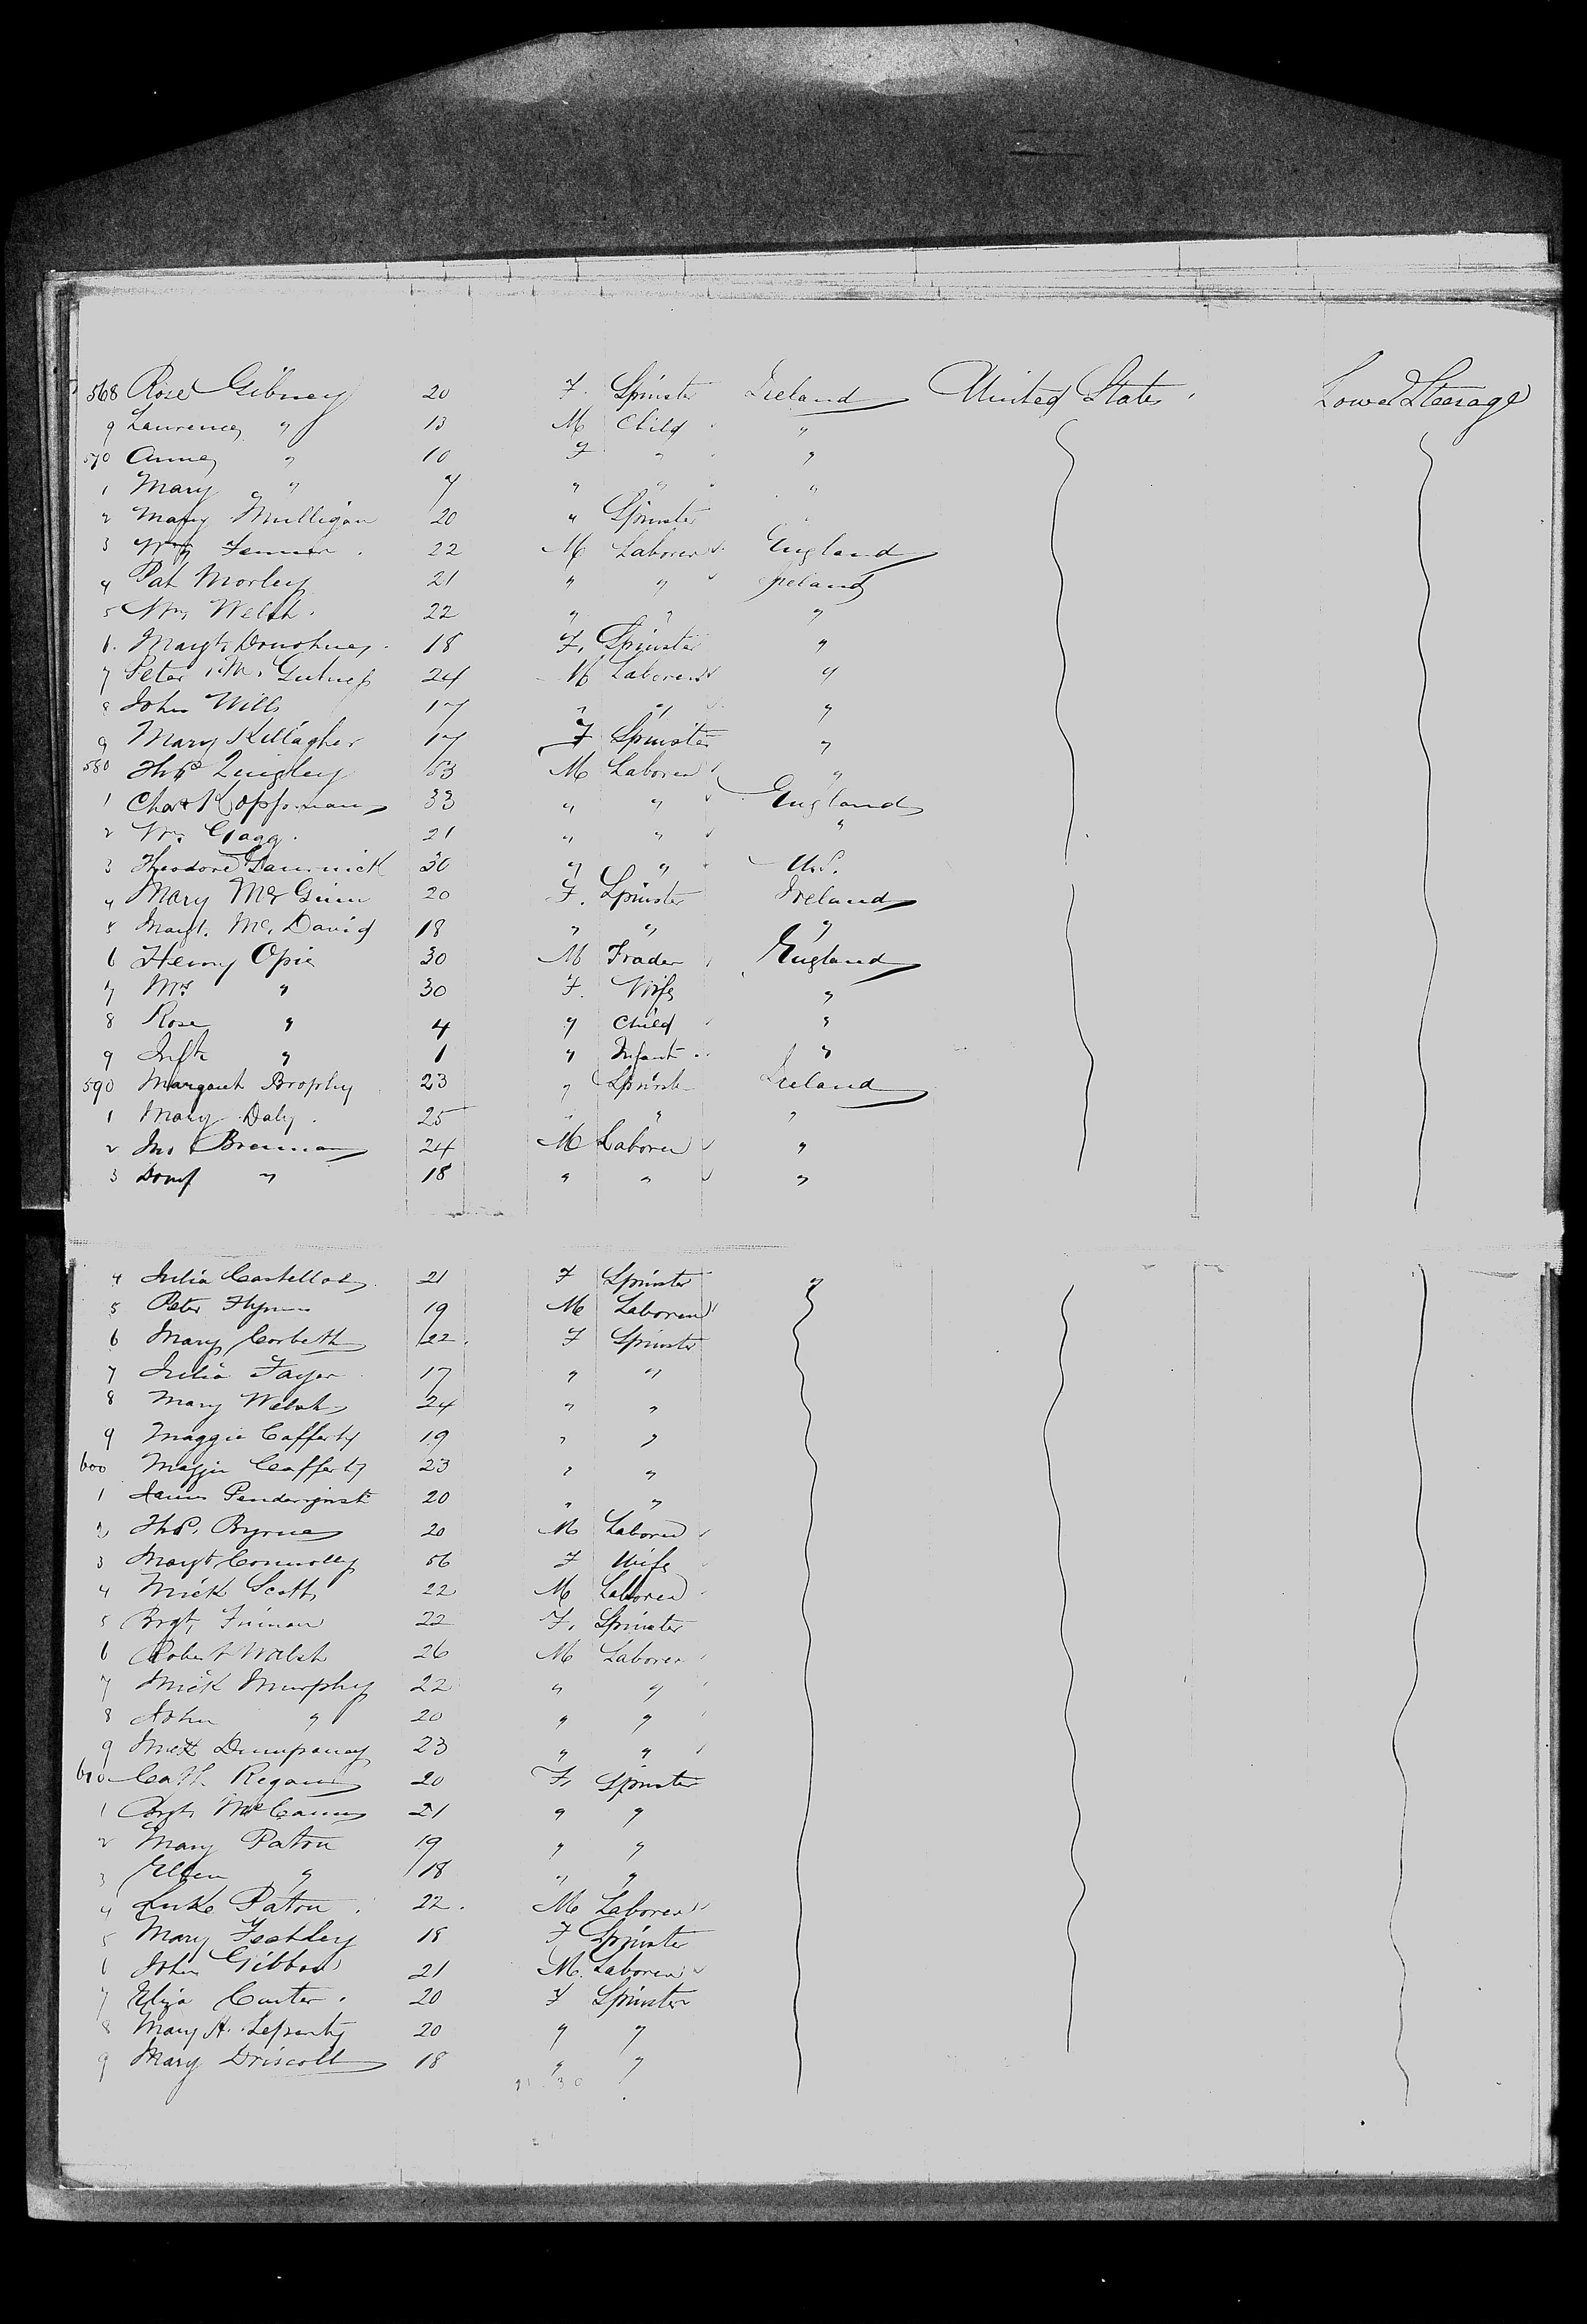 568 Rose Gibney 20 F. Spinster Ireland United States Lower Steerage
9 Laurence " 13 M Child "
570 Anne " 10 F " "
1 Mary " 7 " " "
2 Mary Mulligan 20 " Spinster "
3 Wm 22 M Laborer England
4 Pat Morley 21 " " Ireland
5 Wm Welsh 22 " " "
6 Margt Donohue 18 F. Spinster "
7 Peter 24 M Laborer "
8 John Mills 17 " " "
9 Mary Killagher 17 F Spinster "
580 Thos Quigley M Laborer "
1 Chas 33 " " England
2 Wm Gagg 21 " " "
3 Theodore 30 " " U.S.
4 Mary McGinn 20 F. Spinster Ireland
5 Margt. Mc. David 18 " " "
6 Henry Opie 30 M Trader England
7 Mrs " 30 F. Wife "
8 Rose " 4 " Child "
9 Inft " 1 " Infant "
590 Margaret Brophy 23 " Spinster Ireland
1 Mary Daly 25 " " "
2 Jno Brennan 24 M Laborer "
3 " 18 " " "
4 Julia Costelloe 21 F Spinster "
5 Peter Flynn 19 M Laborer
6 Mary Corbett 22 F Spinster
7 Julia 17 " "
8 Mary Welsh 24 " "
9 Maggie Cafferty 19 " "
600 Maggie Cafferty 23 " "
1 20 " "
2 Thos. Byrne 20 M Laborer
3 Margt Connolly 56 F Wife
4 Mick Scott 22 M Laborer
5 Brgt, 22 F. Spinster
6 Robert Walsh 26 M Laborer
7 Mick Murphy 22 " "
8 John " 20 " "
9 23 " "
610 Cath Regan 20 F. Spinster
1 McCann 21 " "
2 Mary Paton 19 " "
3 Ellen " 18 " "
4 Luke Paton 22 M Laborer
5 Mary 18 F Spinster
6 John Gibbon 21 M. Laborer
7 Eliza 20 F Spinster
8 Mary A. 20 " "
9 Mary Driscoll 18 " "